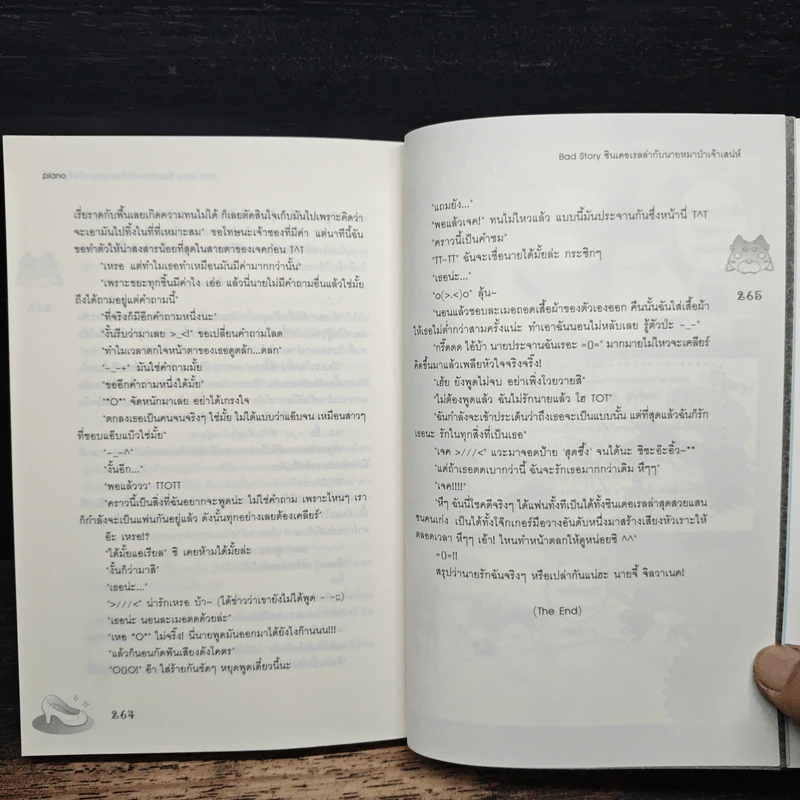 piano
เรี่ยราดกับพื้นเลยเกิดความทนไม่ได้ ก็เลยตัดสินใจเก็บมันไปเพราะคิดว่า
จะเอามันไปทิ้งในที่ที่เหมาะสม" ขอโทษนะเจ้าของที่มีค่า แต่นาทีนี้ฉัน
ขอทำตัวให้น่าสงสารน้อยที่สุดในสายตาของเจคก่อน T^T
"เหรอ แต่ทำไมเธอทำเหมือนมันมีค่ามากกว่านั้น"
"เพราะขยะทุกชิ้นมีค่าไง เอ่อ แล้วนี่นายไม่มีคำถามอื่นแล้วใช่มั้ย
ถึงได้ถามอยู่แต่คำถามนี้"
"ที่จริงก็มีอีกคำถามหนึ่งนะ"
"งั้นรีบว่ามาเลย >_<!" ขอเปลี่ยนคำถามโลด
"ทำไมเวลาตกใจหน้าตาของเธอดูตลัก...ตลก"
"-_-+" มันใช่คำถามมั้ย
"ขออีกคำถามหนึ่งได้มั้ย"
"*O*" จัดหนักมาเลย อย่าได้เกรงใจ
"ตกลงเธอเป็นคนจนจริงๆ ใช่มั้ย ไม่ได้แบบว่าแอ๊บจน เหมือนสาวๆ
ที่ชอบแอ๊บแบ๊วใช่มั้ย"
"-_-^"
"งั้นอีก..."
"พอแล้ววว" TTOTT
"คราวนี้เป็นสิ่งที่ฉันอยากจะพูดน่ะ ไม่ใช่คำถาม เพราะไหนๆ เรา
ก็กำลังจะเป็นแฟนกันอยู่แล้ว ดังนั้นทุกอย่างเลยต้องเคลียร์"
อ๊ะ เหรอ!?
"ได้มั้ยแอเรียล" ชิ เคยห้ามได้มั้ยล่ะ
"งั้นก็ว่ามาสิ"
"เธอน่ะ..."
">///<" น่ารักเหรอ บ้า~ (ได้ข่าวว่าเขายังไม่ได้พูด - -;;)
"เธอน่ะ นอนละเมอตดด้วยล่ะ"
"เหอ *O*" ไม่จริ๊ง! นี่นายพูดมันออกมาได้ยังไงก๊านนน!!!
"แล้วก็นอนกัดฟันเสียงดังโคตร"
"O()O!" อ๊า ใส่ร้ายกันชัดๆ หยุดพูดเดี๋ยวนี้นะ
264
Bad Story ซินเดอเรลล่ากับนายหมาป่าเจ้าเสน่ห์
"แถมยัง..."
"พอแล้วเจค!" ทนไม่ไหวแล้ว แบบนี้มันประจานกันซึ่งหน้านี่ T^T
"คราวนี้เป็นคำชม"
"TT-TT" ฉันจะเชื่อนายได้มั้ยล่ะ กระซิกๆ
"เธอน่ะ..."
"o(>.<)o" ลุ้น~
"นอนแล้วชอบละเมอถอดเสื้อผ้าของตัวเองออก คืนนั้นฉันใส่เสื้อผ้า
ให้เธอไม่ต่ำกว่าสามครั้งแน่ะ ทำเอาฉันนอนไม่หลับเลย รู้ตัวป่ะ -_-"
"กรี๊ดดด ไอ้บ้า นายประจานฉันเรอะ =()=" มากมายไม่ไหวจะเคลียร์
คิดขึ้นมาแล้วเพลียหัวใจจริงจริ๊ง!
"เฮ้ย ยังพูดไม่จบ อย่าเพิ่งโวยวายสิ"
"ไม่ต้องพูดแล้ว ฉันไม่รักนายแล้ว โฮ TOT"
"ฉันกำลังจะเข้าประเด็นว่าถึงเธอจะเป็นแบบนั้น แต่ที่สุดแล้วฉันก็รัก
เธอนะ รักในทุกสิ่งที่เป็นเธอ"
"เจค >///<" แวะมาจอดป้าย 'สุดซึ้ง' จนได้นะ ชิชะอ๊ะอิ๊ว~**
"แต่ถ้าเธอตดเบากว่านี้ ฉันจะรักเธอมากกว่าเดิม หึๆๆ"
"เจค!!!!"
"หึๆ ฉันนี่โชคดีจริงๆ ได้แฟนทั้งทีเป็นได้ทั้งซินเดอเรลล่าสุดสวยแสน
ซนคนเก่ง เป็นได้ทั้งโจ๊กเกอร์มือวางอันดับหนึ่งมาสร้างเสียงหัวเราะให้
ตลอดเวลา หึๆๆ เอ้า! ไหนทำหน้าตลกให้ดูหน่อยซิ ^^"
=()=!!
สรุปว่านายรักฉันจริงๆ หรือเปล่ากันแน่ฮะ นายจี้ จิลวาเนค!
(The End)
265